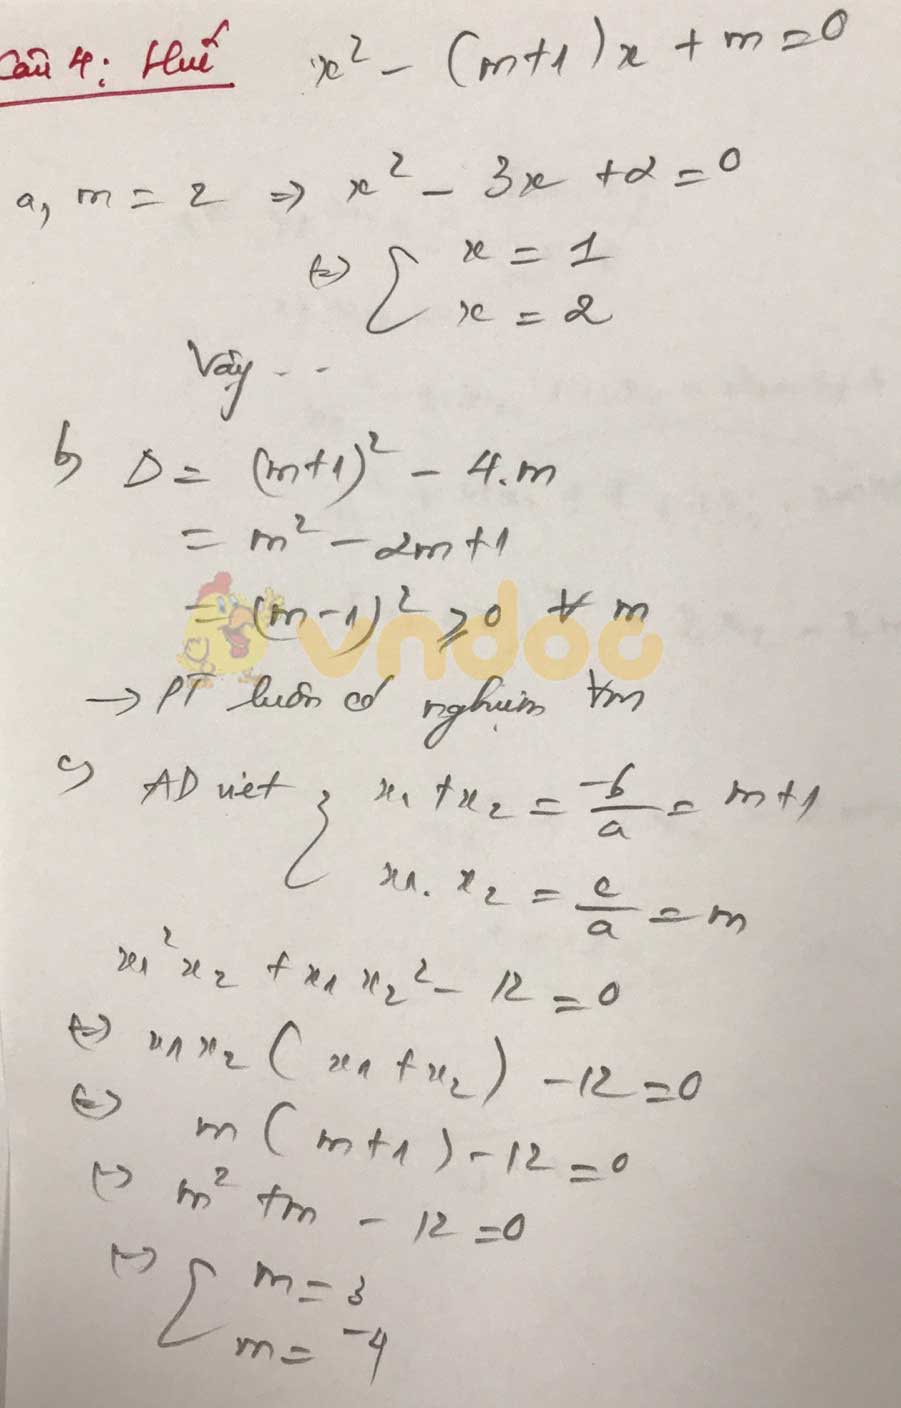 Câu 4: Huế x² - (m+1)x + m = 0
a, m = 2 => x² - 3x + 2 = 0
(=) { x = 1
x = 2
Vậy ...
b) Δ = (m+1)² - 4.m
= m² - 2m + 1
= (m-1)² ≥ 0 ∀ m
vndoc
→ PT luôn có nghiệm ∀m
c) AD viet { x₁ + x₂ = -b/a = m+1
x₁. x₂ = c/a = m
x₁²x₂ + x₁x₂² - 12 = 0
(=) x₁x₂ (x₁ + x₂) - 12 = 0
(=) m (m+1) - 12 = 0
(=) m² + m - 12 = 0
(=) { m = 3
m = -4